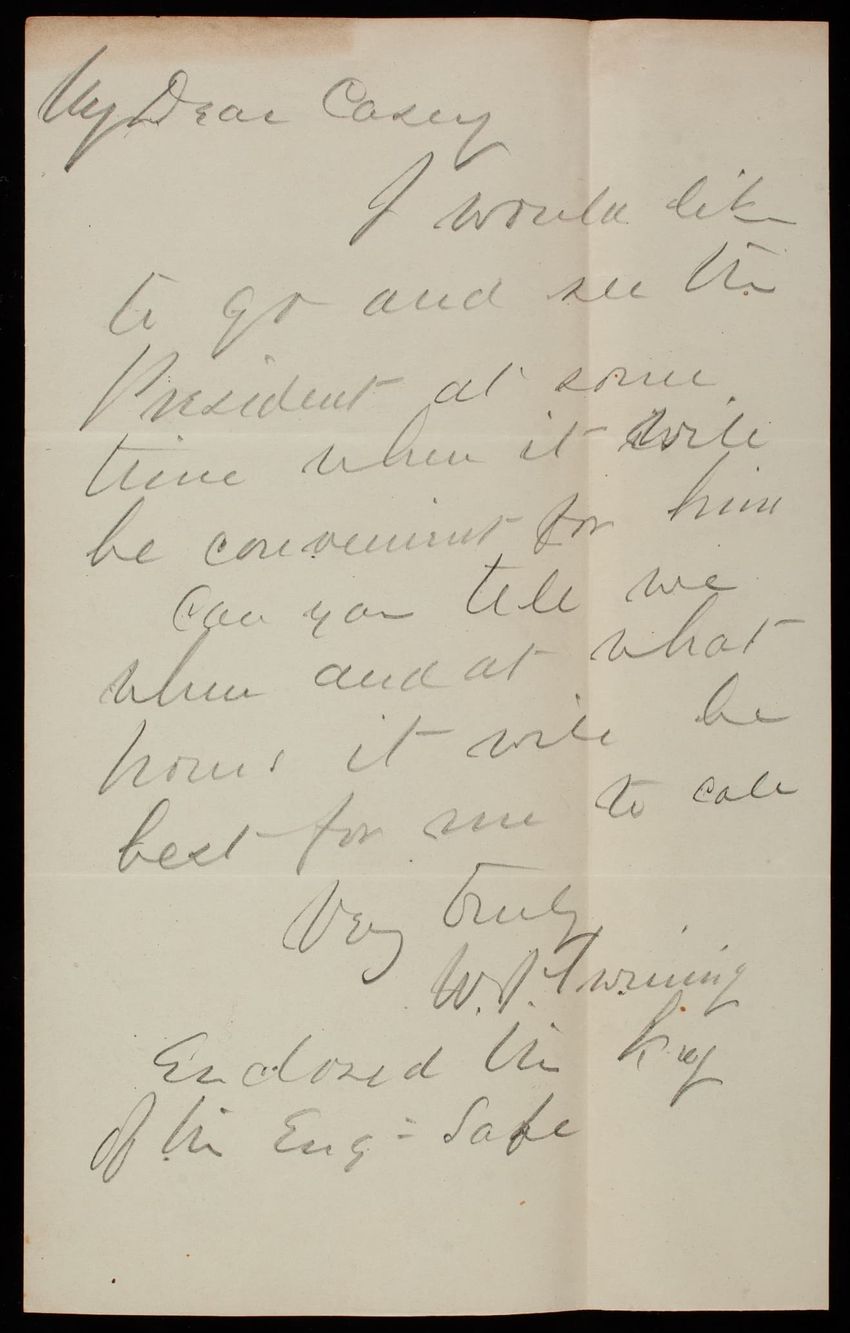 My Dear Casey
I would like
to go and see the
President at some
time when it will
be convenient for him
Can you tell me
when and at what
hour it will be
best for me to call
Very truly
W. J. Twining
Enclosed the key
of the Eng = Safe